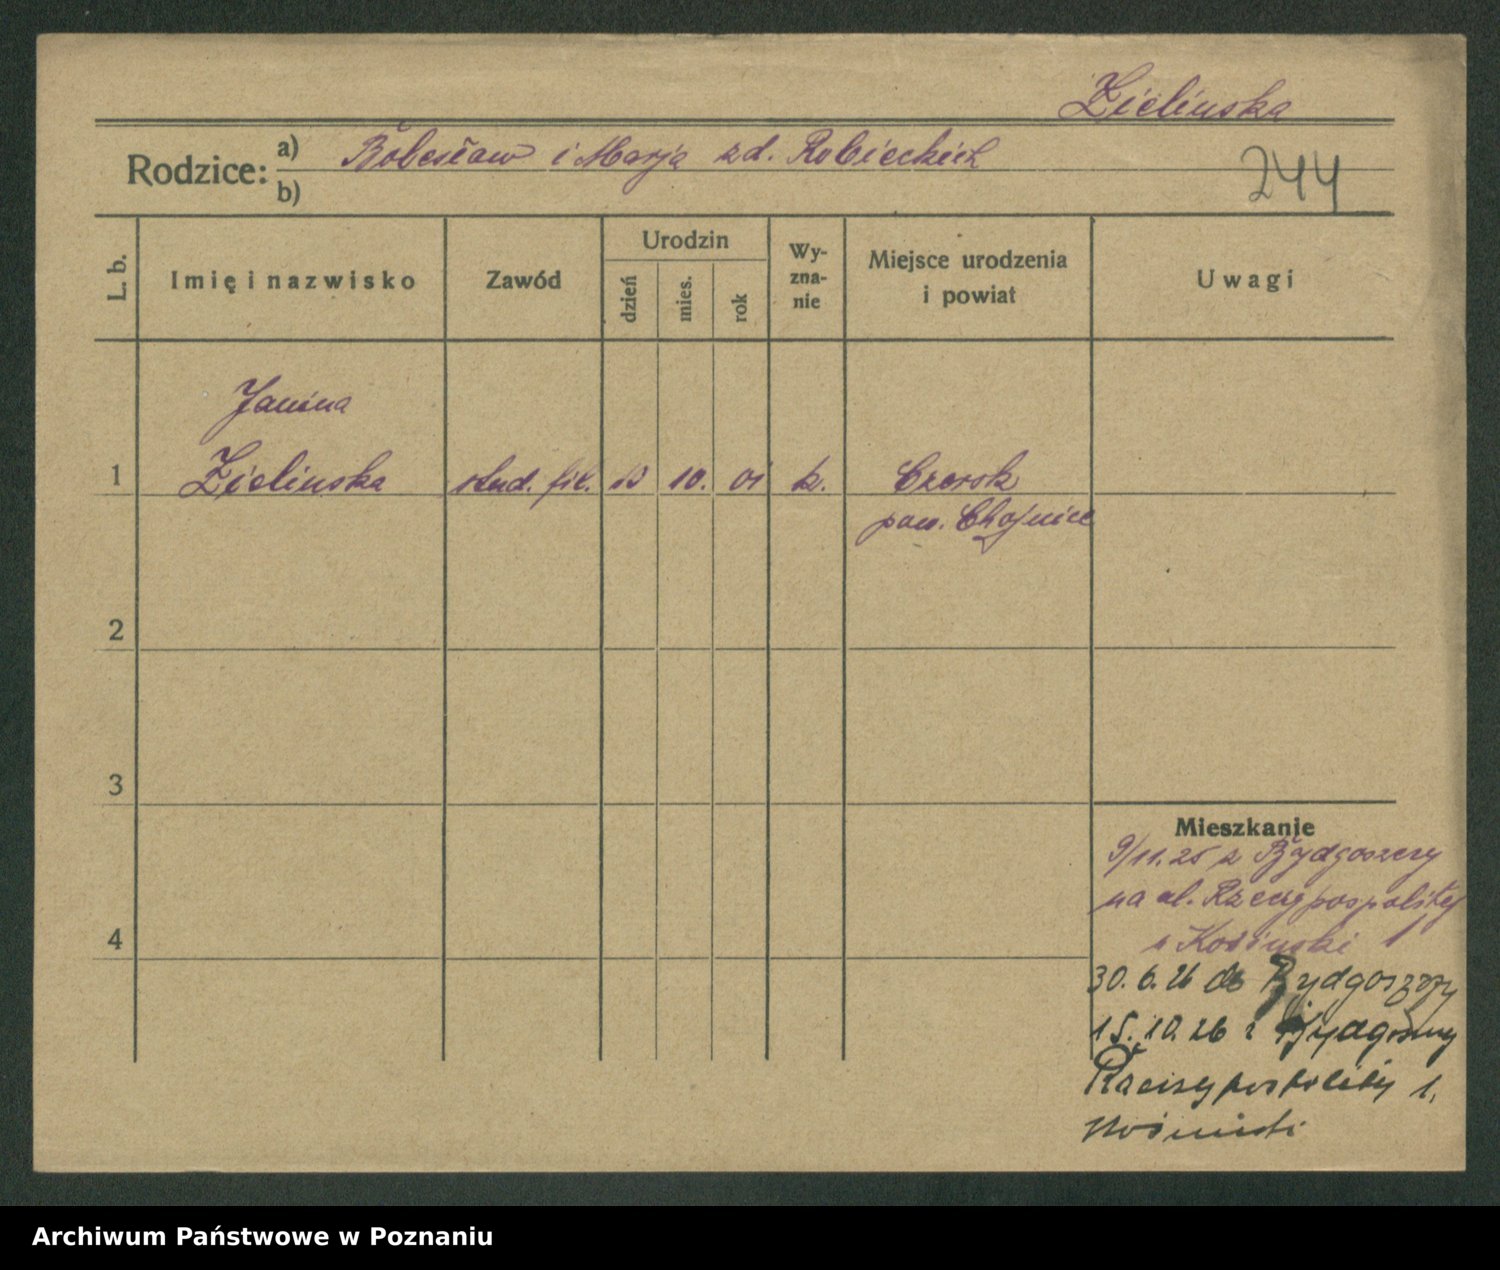 Zielinska
Rodzice: a) Bolesław i Marja z d. Robieckich
b)
244
L. b.
Imię i nazwisko
Zawód
Urodzin
dzień
mies.
rok
Wy-
zna-
nie
Miejsce urodzenia
i powiat
Uwagi
Janina
1 Zielinska stud. fil. 10. 01 k. Czersk
pow. Chojnice
2
3
4
Mieszkanie
9/11.25 z Bydgoszczy
na ul. Rzeczypospolitej
1
30.6.26 do Bydgoszczy
15.10.26 z Bydgoszczy
Rzeczypospolitej 1.
Archiwum Państwowe w Poznaniu